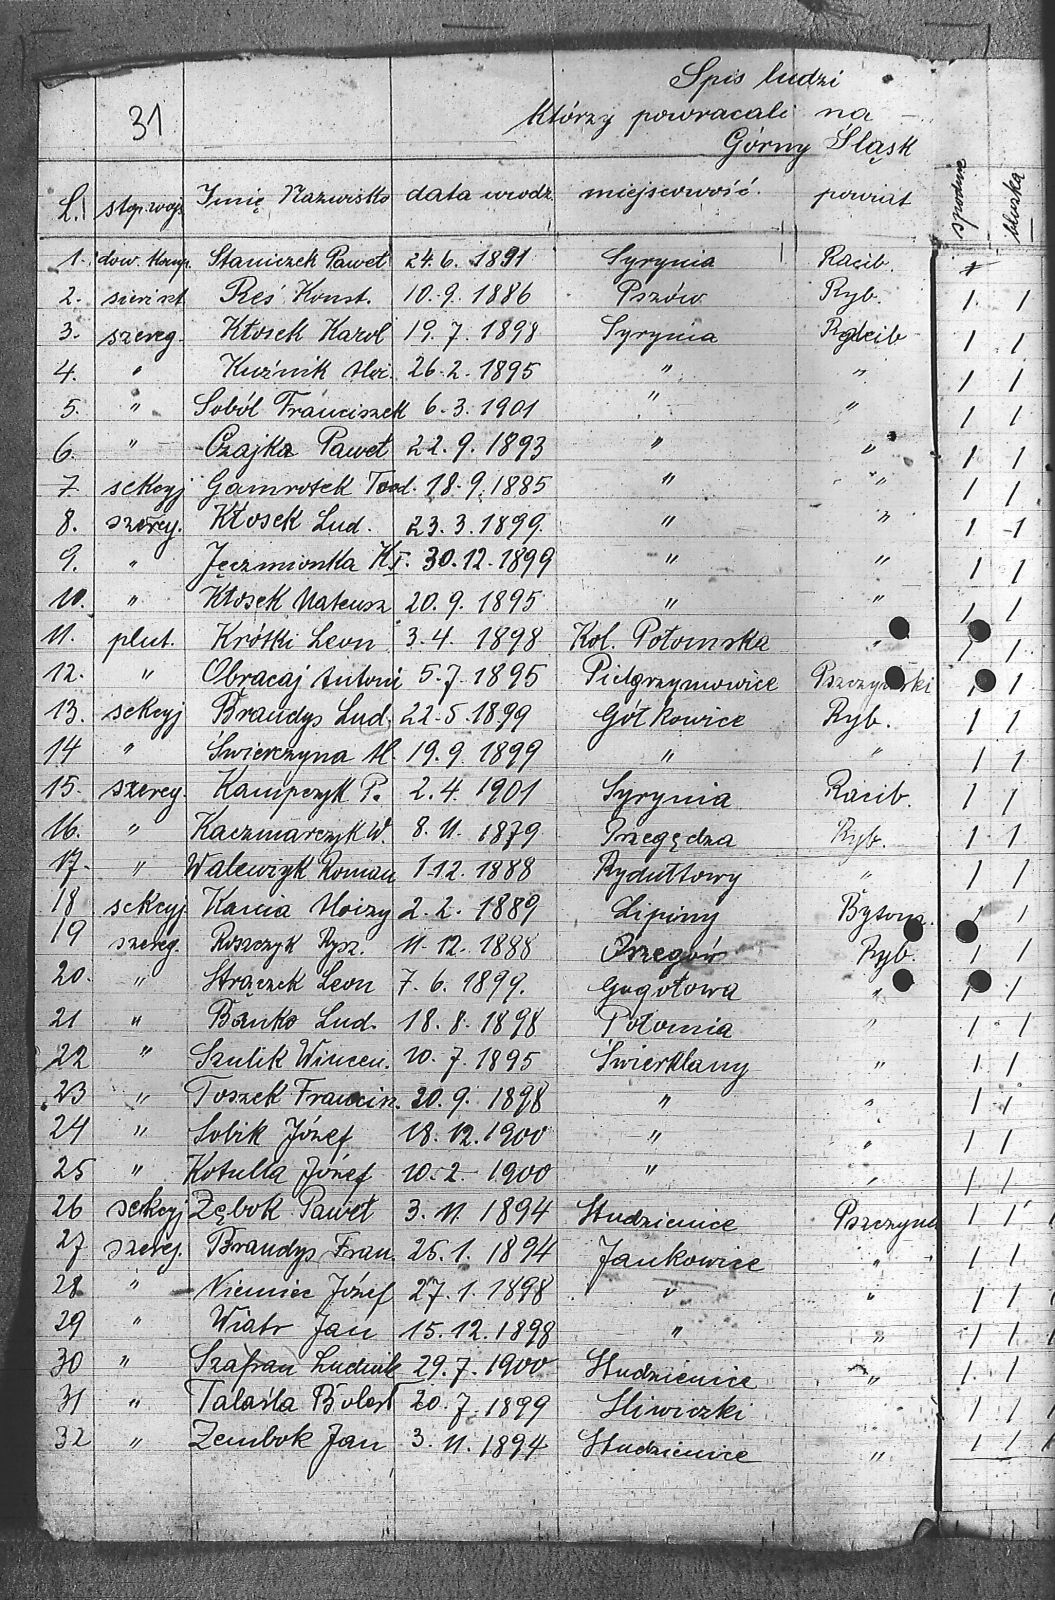 Spis ludzi
31 którzy powracali na
Górny Śląsk
L. stop. woj. Imię Nazwisko data urodz. miejscowość. powiat spodnie bluzka
1. dow. komp. Staniczek Paweł 24.6. 1891 Syrynia Racib.
2. Reś Konst. 10.9. 1886 Pszów Ryb. 1 1
3. szereg. Kłosek Karol 19.7. 1898 Syrynia Racib 1 1
4. " Kuźnik Aloi. 26.2. 1895 " " 1 1
5. " Soból Franciszek 6.3. 1901 " " 1 1
6. " Czajka Paweł 22.9. 1893 " " 1 1
7 sekcyj Gamrotek Teod. 18.9. 1885 " " 1 1
8. szereg. Kłosek Lud. 23.3. 1899. " " 1 1
9. " Jęczmionka K. 30.12.1899 " " 1 1
10. " Kłosek Mateusz 20.9. 1895 " " 1 1
11. plut. Krótki Leon 3.4. 1898 Kol. Połomska " 1 1
12. " Obracaj Antoni 5.7. 1895 Pielgrzymowice Pszczyński 1 1
13. sekcyj Brandys Lud. 22.5.1899 Gołkowice Ryb. 1 1
14 " Świerczyna Al. 19.9. 1899 " " 1 1
15. szereg. Kampczyk P. 2.4. 1901 Syrynia Racib. 1 1
16. " Kaczmarczyk W. 8.11. 1879 Przegędza Ryb. 1 1
17. " Walewzyk Roman 1.12. 1888 Rydułtowy " 1 1
18 sekcyj Kania Aloizy 2.2. 1889 Lipiny Bytom. 1 1
19 szereg. Roszczyk Rysz. 11.12. 1888 Orzegów Ryb. 1 1
20. " Strączek Leon 7.6. 1899. Gogołowa " 1 1
21 " Banko Lud. 18.8. 1898 Połomia " 1 1
22 " Szulik Wincen. 10.7. 1895 Świerklany " 1 1
23 " Toszek Francisz. 20.9. 1898 " " 1 1
24 " Sobik Józef 18.12.1900 " " 1 1
25 " Kotulla Józef 10.2. 1900 " " 1 1
26 sekcyj Zębok Paweł 3.11. 1894 Studzienice Pszczyna 1 1
27 szereg. Brandys Fran. 26.1. 1894 Jankowice " 1 1
28 " Niemiec Józef 27.1. 1898 " " 1 1
29 " Wiatr Jan 15.12.1898 " " 1 1
30 " Szafran Ludwik 29.7. 1900 Studzienice " 1 1
31 " Talarła 20.7. 1899 " 1 1
32 " Zembok Jan 3.11. 1894 Studzienice " 1 1